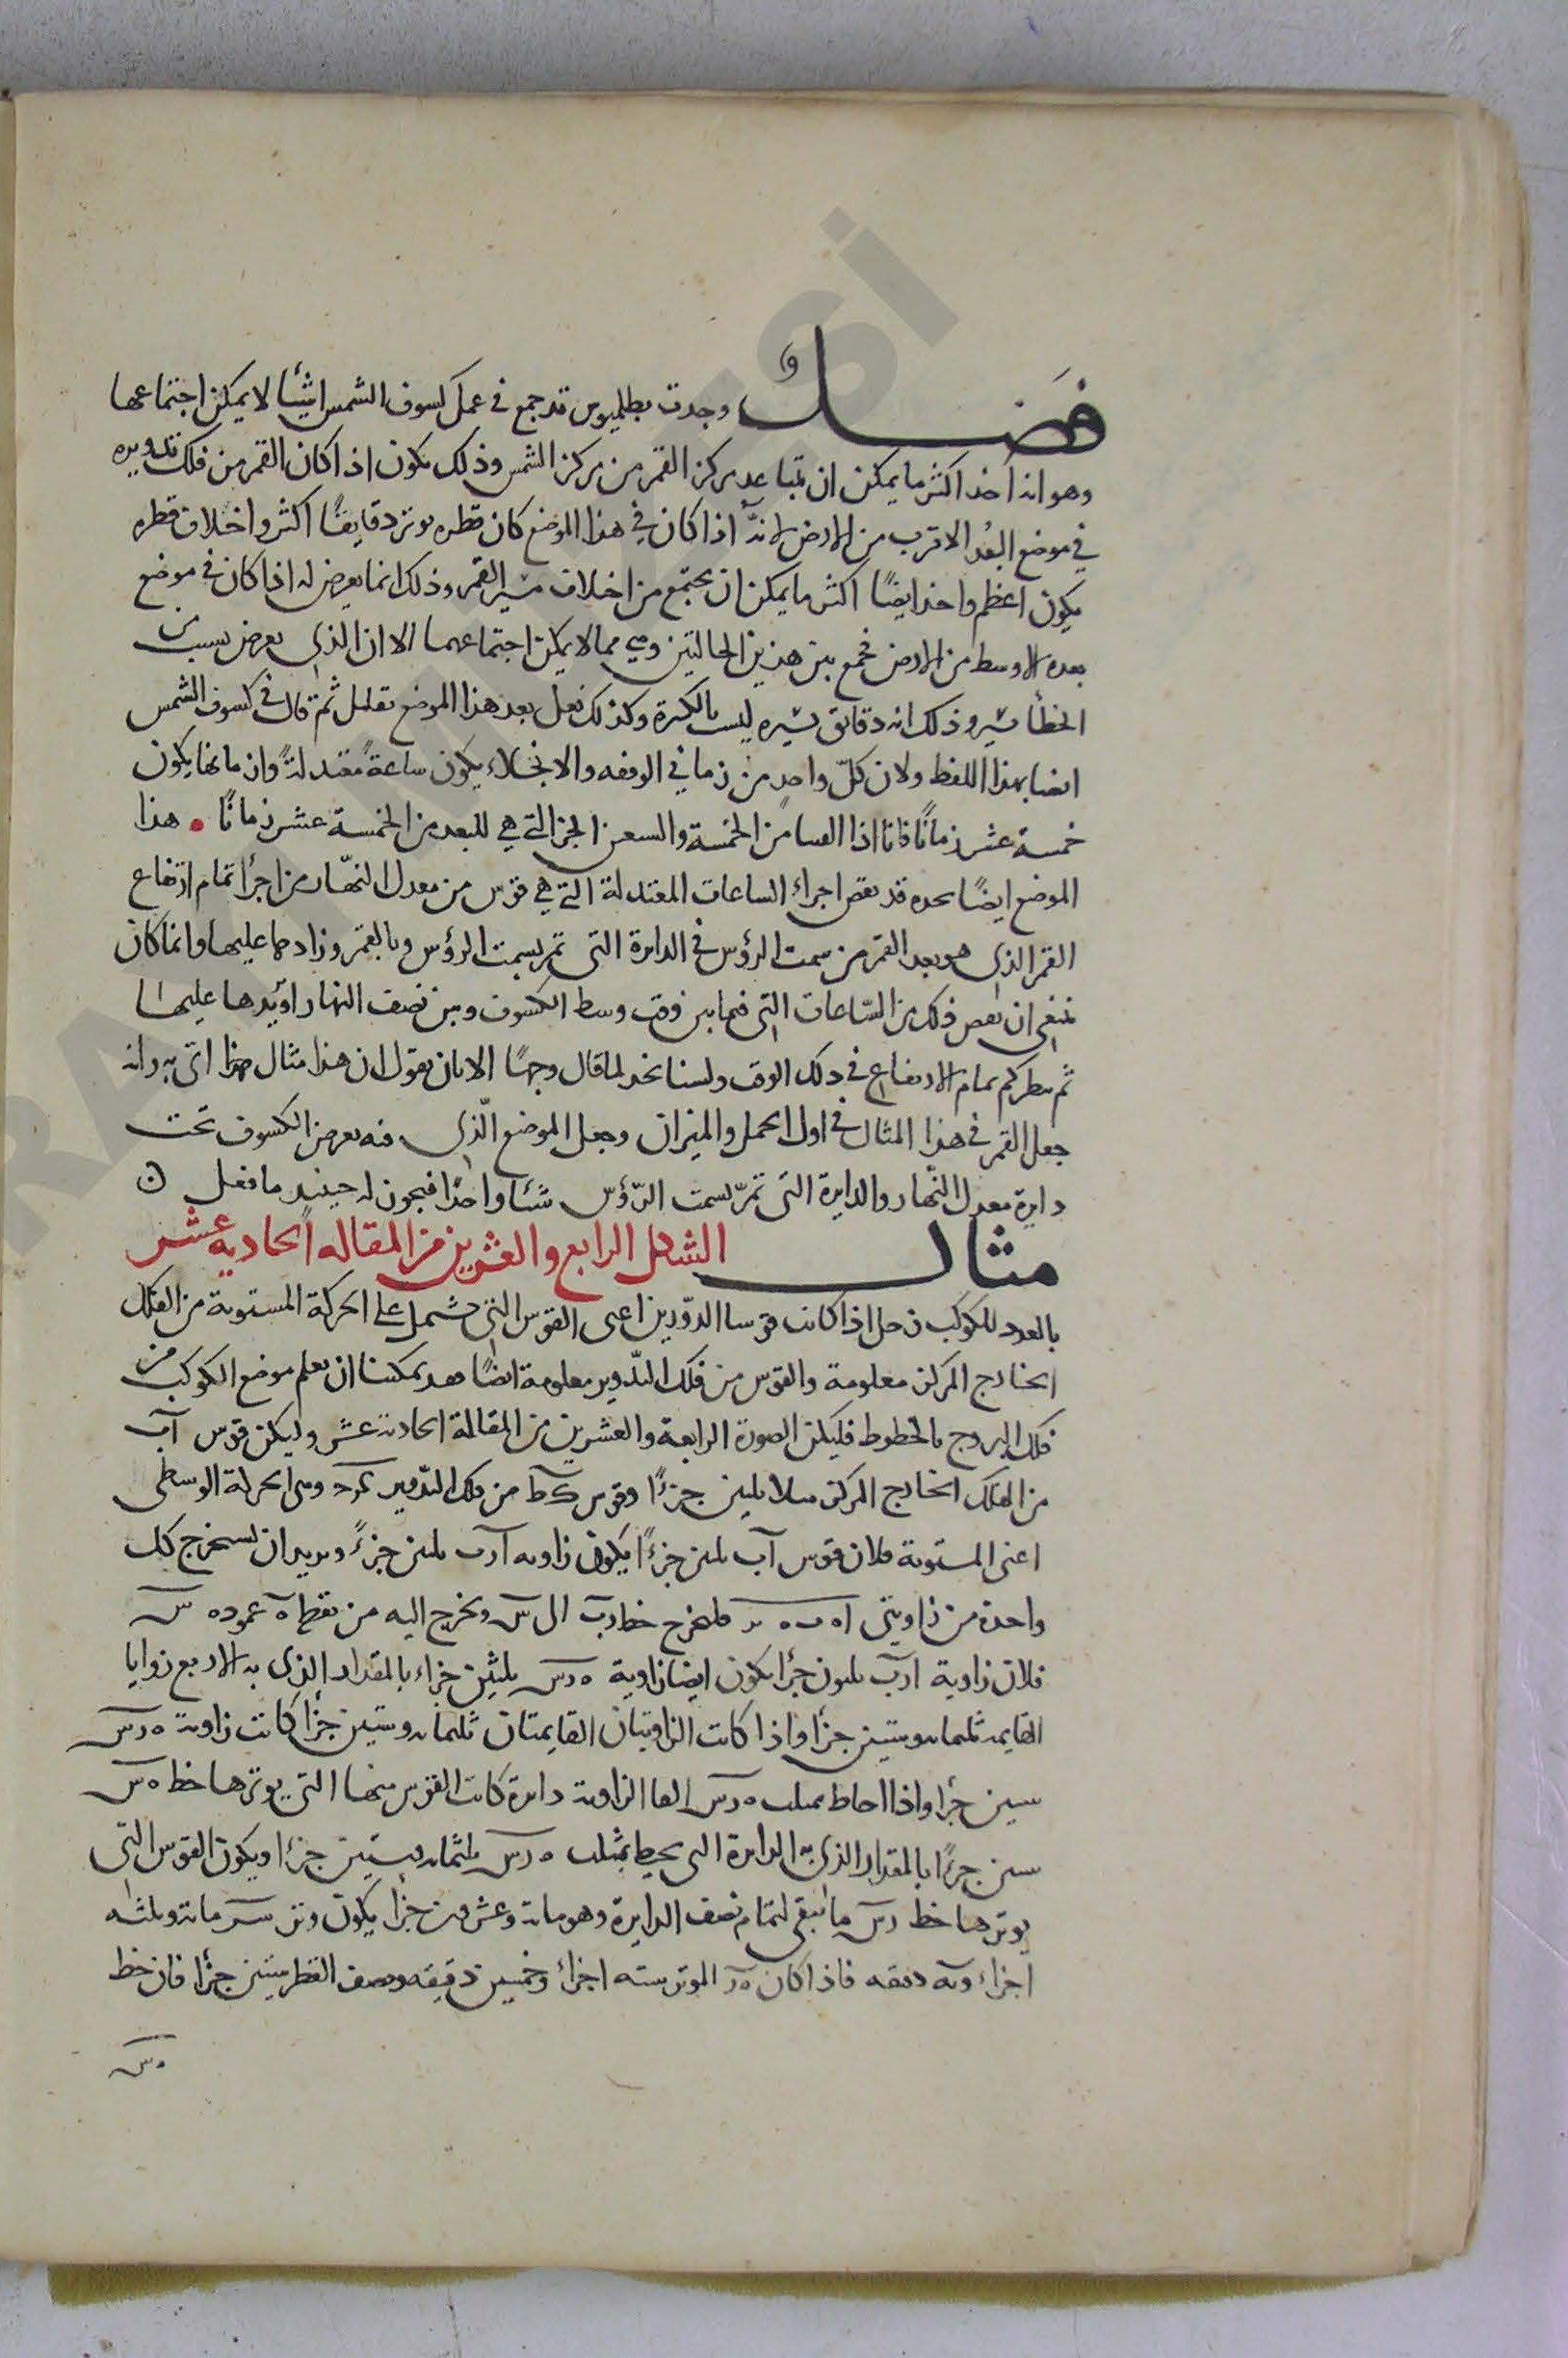 فصل وجدت بطلميوس قد جمع في عمل كسوف الشمس اشيئا لا يمكن اجتماعها
وهو انه اخذ اكثر ما يمكن ان تباعد مركز القمر من مركز الشمس وذلك يكون اذا كان القمر من فلك تدويره
في موضع البعد الاقرب من الارض لانه اذا كان في هذا الموضع كان قطره يوتر دقايقا اكثر واختلاف قطره
يكون اعظم واخذ ايضا اكثر ما يمكن ان يجتمع من اختلاف مسير القمر وذلك انما يعرض له اذا كان في موضع
بعده الاوسط من الارض فجمع بين هذين الحالتين وهي مما لا يمكن اجتماعهما الا ان الذي يعرض بسبب من
الخطأ يسير وذلك انه دقايق يسيره ليست بالكثرة وكذلك فعل بعد هذا الموضع بقليل ثم قال في كسوف الشمس
ايضا بهذا اللفظ ولان كل واحد من زماني الوقفه والانجلاء يكون ساعة معتدلة وازمانها يكون
خمسة عشر زمانا فانا اذا القينا من الخمسة والسبعين الجزا التي هي للبعد من الخمسة عشر زمانا • هذا
الموضع ايضا نجده قد نقص اجزاء الساعات المعتدلة التي هي قوس من معدل النهار من اجزا تمام ارتفاع
القمر الذي هو بعد القمر من سمت الرؤس في الدايرة التي تمر بسمت الرؤس وبالقمر وزادها عليها وانما كان
ينبغي ان ينقص ذلك من الساعات التي فيما بين وقت وسط الكسوف وبين نصف النهار او يزيدها عليها
ثم ينظر كم تمام الارتفاع في ذلك الوقت ولسنا نجد لما قال وجها الا بان نقول ان هذا مثال اتى به وانه
جعل القمر في هذا المثال في اول الحمل والميزان وجعل الموضع الذي فيه يعرض الكسوف تحت
دايرة معدل النهار والدايرة التي تمر بسمت الرؤس شئا واحدا فيجوز له حينيذ ما فعل
مثال الشكل الرابع والعشرين من المقاله الحاديه عشر
بالعدد للكوكب زحل اذا كانت قوسا الدورين اعني القوس التي تشمل على الحركة المستوية من الفلك
الخارج المركز معلومة والقوس من فلك التدوير معلومة ايضا فقد يمكننا ان نعلم موضع الكوكب من
فلك البروج بالخطوط فليكن الصورة الرابعة والعشرين من المقالة الحادية عشر وليكن قوس آب
من الفلك الخارج المركز مثلا ثلثين جزءا وقوس كط من فلك التدوير وهي الحركة الوسطى
اعني المستوية فلان قوس آب ثلثين جزءا يكون زاوية آرب ثلثين جزءً ونريد ان نستخرج كل
واحدة من زاويتي فلنخرج خط رب الى س ونخرج اليه من نقطة ه عمود ه س
فلان زاوية ارب ثلثون جزأ يكون ايضا زاوية ه رس ثلثين جزاء بالمقدار الذي به الاربع زوايا
القايمه ثلثمايه وستين جزأ واذا كانت الزاويتان القايمتان ثلثمايه وستين جزأ كانت زاوية ه رس
ستين جزأ واذا احاط بمثلث ه رس القا الزاوية دايرة كانت القوس منها التي يوترها خط ه س
ستين جزءًا بالمقدار الذي به الدايرة التي يحيط بمثلث ه رس ثلثمايه وستين جزءا ويكون القوس التي
يوترها خط رس ما تبقى لتمام نصف الدايرة وهو ماية وعشرون جزأ يكون وتر س ر ماية وثلثه
اجزاء ونه دقيقه فاذا كان ه ر الموتر سته اجزاء وخمسين دقيقه ونصف القطر ستين جزأ فان خط
ه س